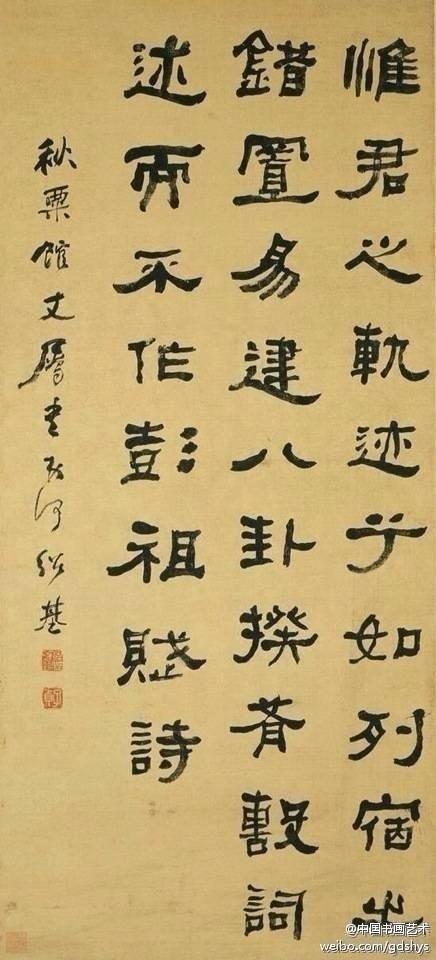 惟君之軌迹兮如列宿之
錯置易建八卦揆肴毄詞
述而不作彭祖賦詩
秋粟館丈屬書弟何紹基
@中国书画艺术
weibo.com/gdshys